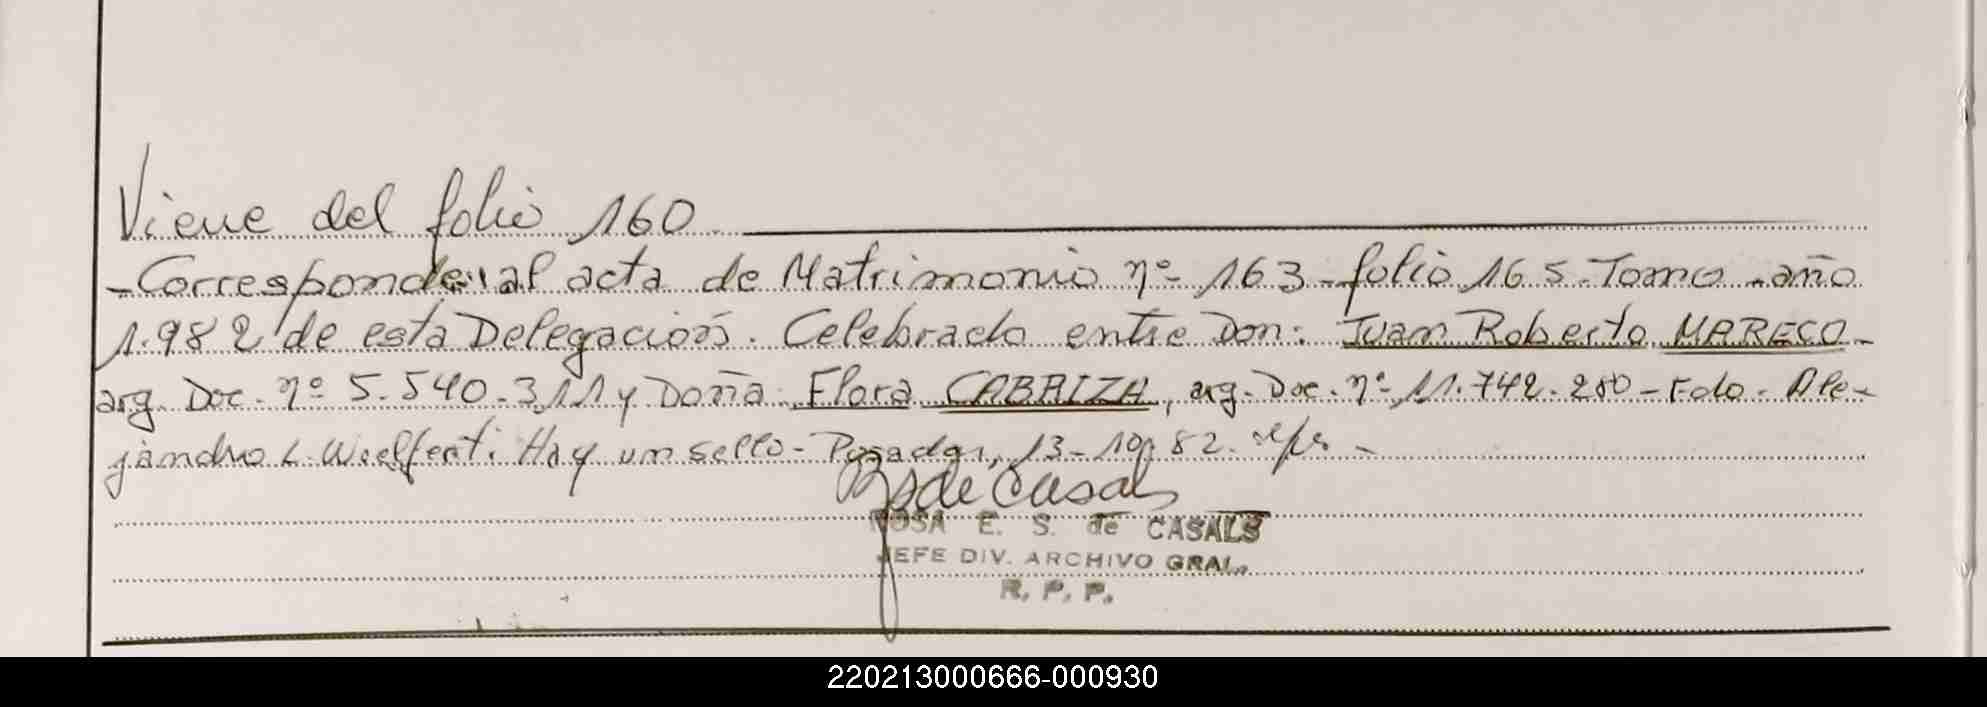 Viene del folio 160
-Corresponde al acta de Matrimonio nº 163-folio 165. Tomo - año
1.982 de esta Delegación. Celebrado entre Don: Juan Roberto MARECO-
arg. Doc. nº 5.540.311 y Doña Flora CABRIZA, arg. Doc. nº 11.742.280-Fdo. Ale-
jandro L. Hay un sello- Posadas, 13-10-82.
de Casals
ROSA E. S. de CASALS
JEFE DIV. ARCHIVO GRAL.
R. P. P.
220213000666-000930